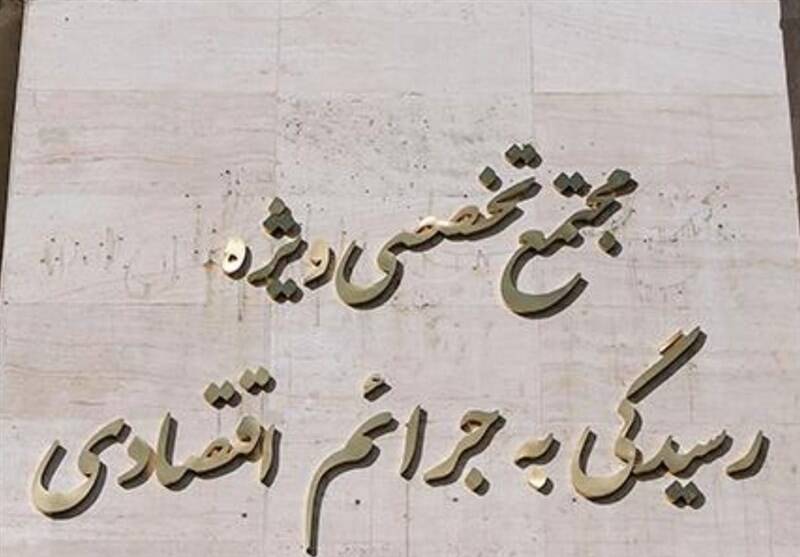 مجتمع تخصصی ویژه
رسیدگی به جرائم اقتصادی